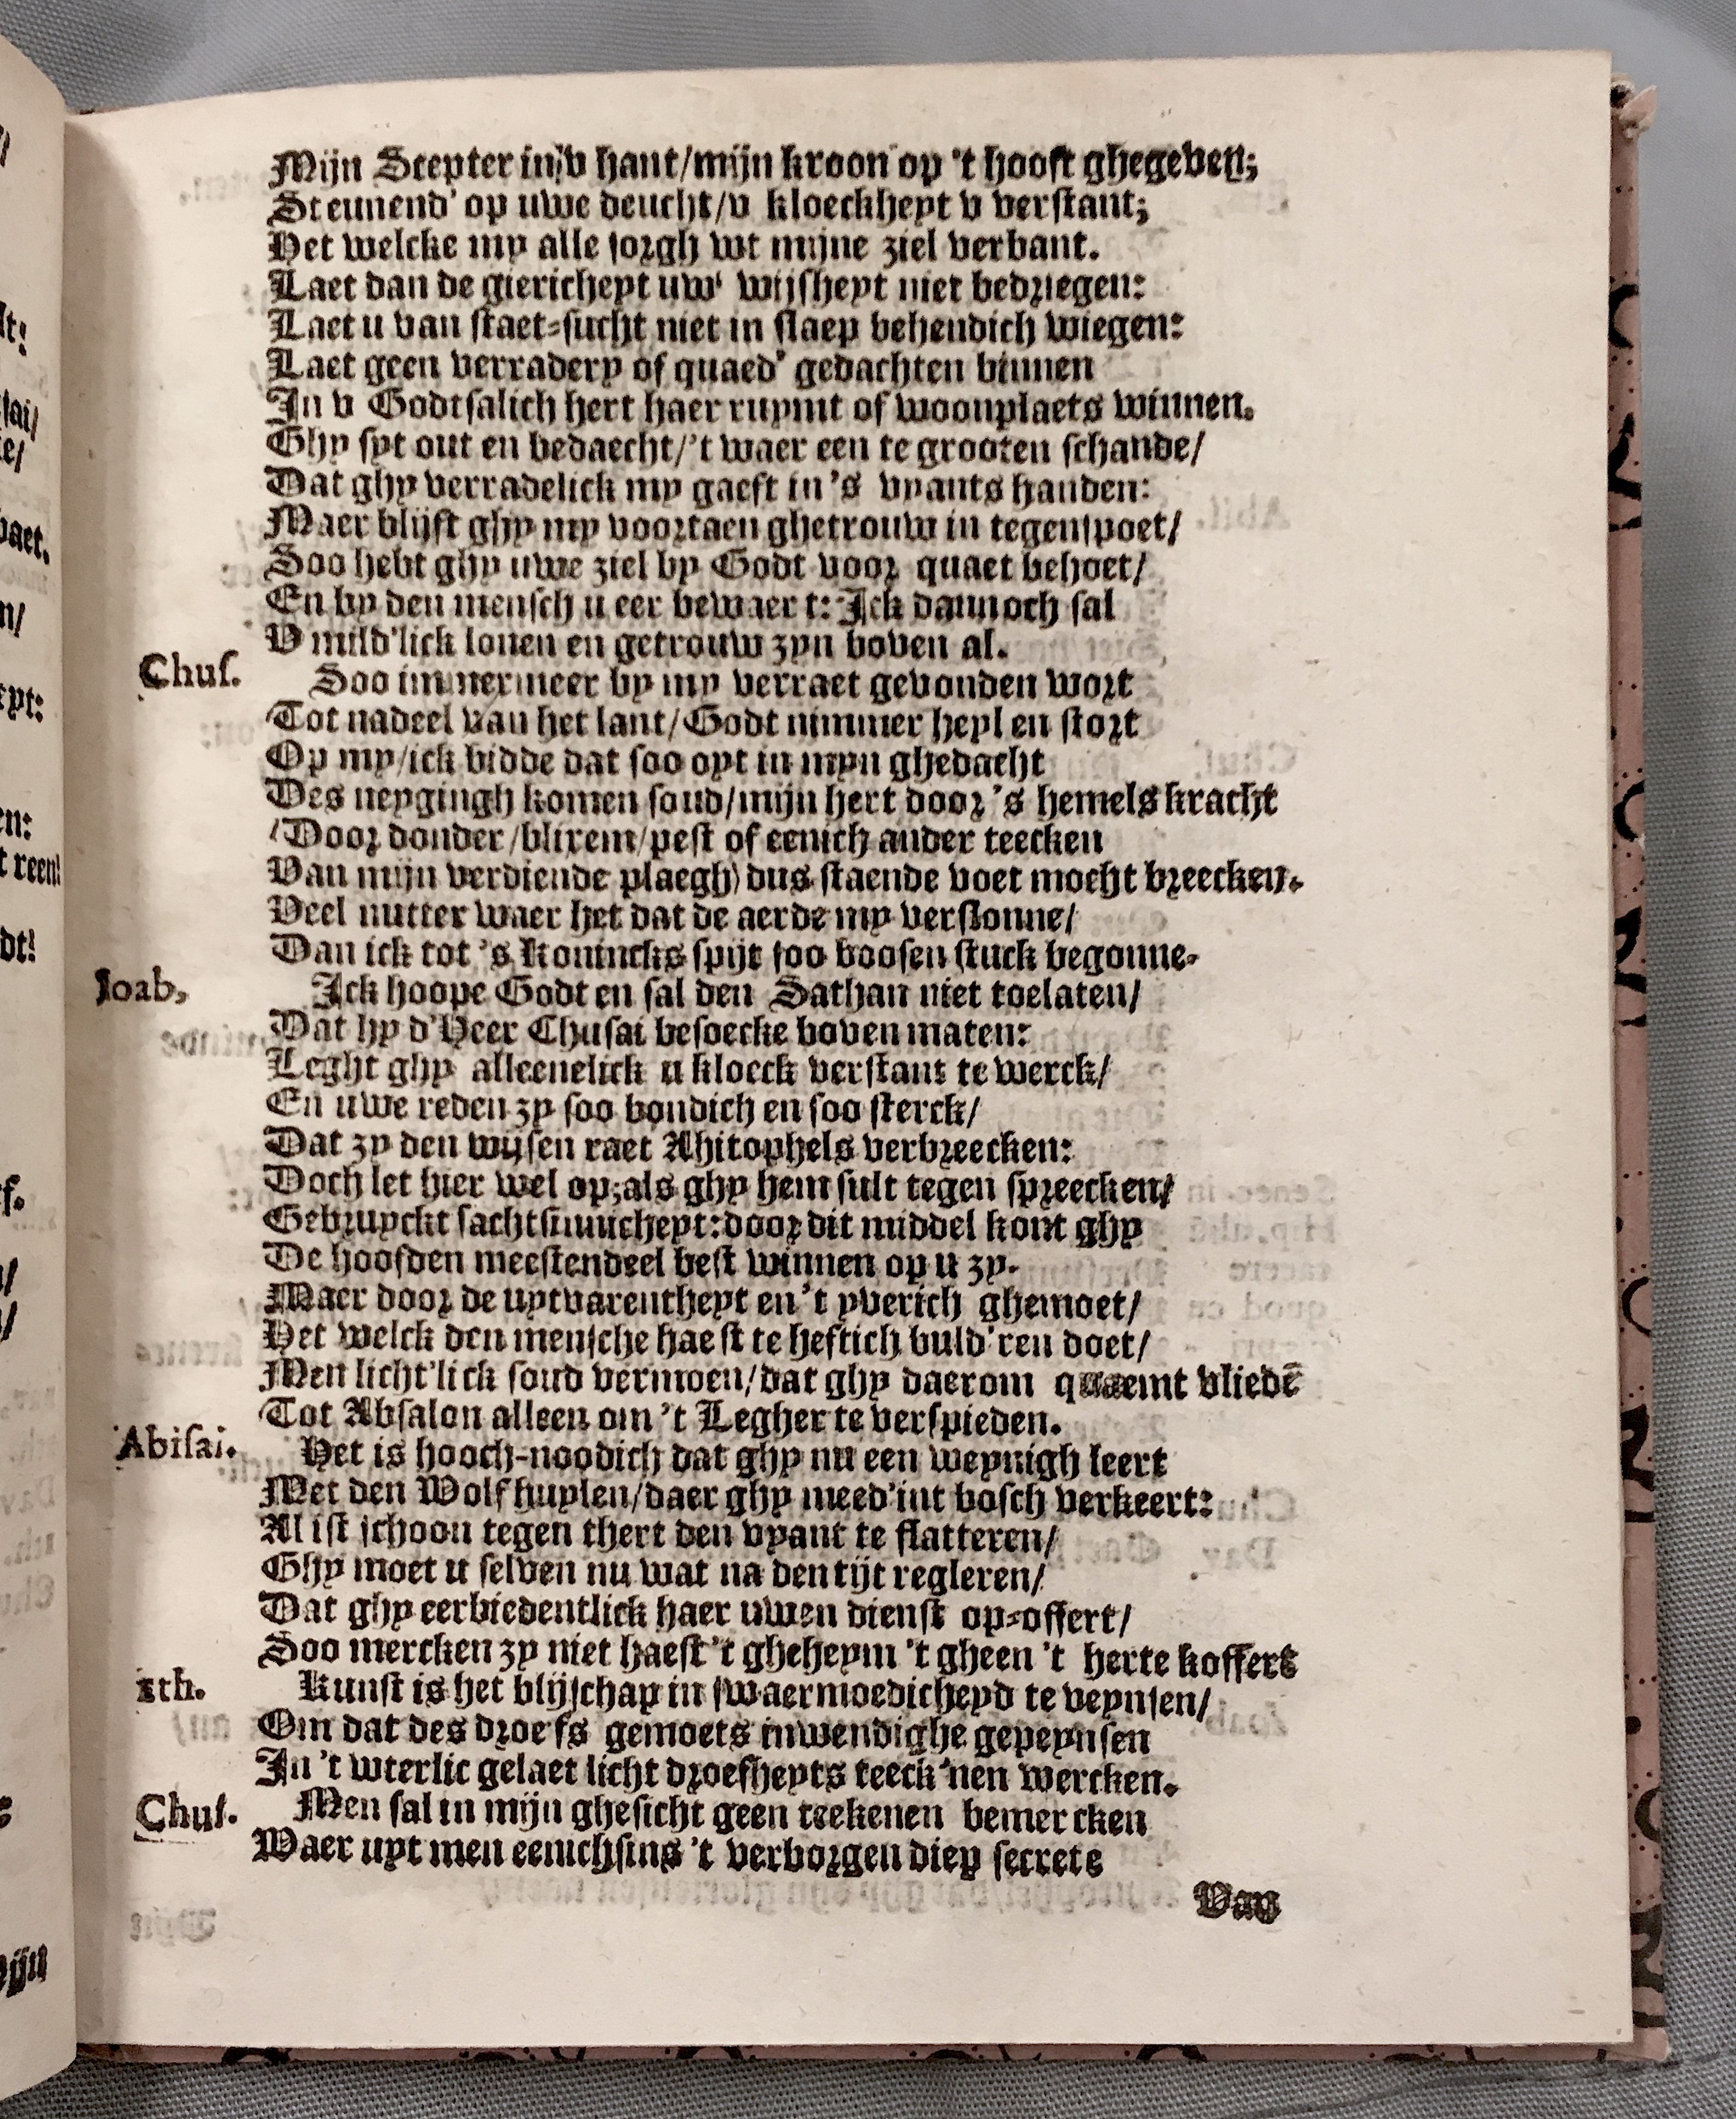 Mijn Scepter in v hant/mijn kroon op 't hooft ghegeven;
Steunend' op uwe deucht/v kloeckheyt v verstant;
Het welcke my alle sorgh wt mijne ziel verbant.
Laet dan de giericheyt uw' wijsheyt niet bedriegen:
Laet u van staet-sucht niet in slaep behendich wiegen:
Laet geen verradery of quaed' gedachten binnen
In v Godtsalich hert haer ruymt of woonplaets winnen.
Ghy syt out en bedaecht/'t waer een te grooten schande/
Dat ghy verradelick my gaeft in 's vyants handen:
Maer blijft ghy my voortaen ghetrouw in tegenspoet/
Soo hebt ghy uwe ziel by Godt voor quaet behoet/
En by den mensch u eer bewaert: Ick dannoch sal
V mild'lick lonen en getrouw zyn boven al.
Chus. Soo immermeer by my verraet gevonden wort
Tot nadeel van het lant/Godt nimmer heyl en stort
Op my/ick bidde dat soo oyt in myn ghedacht
Des neygingh komen soud/mijn hert door 's hemels kracht
(Door donder/blixem/pest of eenich ander teecken
Van mijn verdiende plaegh) dus staende voet mocht breecken.
Veel nutter waer het dat de aerde my verslonne/
Dan ick tot 's Konincks spijt soo boosen stuck begonne.
Joab, Ick hoope Godt en sal den Sathan niet toelaten/
Dat hy d'Heer Chusai besoecke boven maten:
Leght ghy alleenelick u kloeck verstant te werck/
En uwe reden zy soo bondich en soo sterck/
Dat zy den wijsen raet Ahitophels verbreecken:
Doch let hier wel op;als ghy hem sult tegen spreecken/
Gebruyckt sachtsinnicheyt:door dit middel kont ghy
De hoofden meestendeel best winnen op u zy.
Maer door de uytvarentheyt en 't yverich ghemoet/
Het welck den mensche haest te heftich buld'ren doet/
Men licht'lick soud vermoen/dat ghy daerom quaemt vliedē
Tot Absalon alleen om 't Legher te verspieden.
Abisai. Het is hooch-noodich dat ghy nu een weynigh leert
Met den Wolf huylen/daer ghy meed'int bosch verkeert:
Al ist schoon tegen thert den vyant te flatteren/
Ghy moet u selven nu wat na den tijt regleren/
Dat ghy eerbiedentlick haer uwen dienst op-offert/
Soo mercken zy niet haest 't gheheym 't gheen 't herte koffert
ith. Kunst is het blijschap in swaermoedicheyd te veynsen/
Om dat des droefs gemoets inwendighe gepeynsen
In 't wterlic gelaet licht droefheyts teeck'nen wercken.
Chus. Men sal in mijn ghesicht geen teekenen bemercken
Waer uyt men eenichsins 't verborgen diep secrete
Van